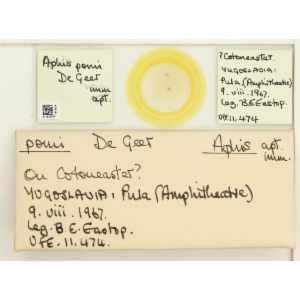 Aphis pomi
De Geer
imm
apt.
?Cotoneaster.
YUGOSLAVIA:
Pula (Amphitheatre)
9. viii. 1967.
Leg. B.E. Eastop.
UFE.11.474
pomi De Geer Aphis apt.
imm.
On Cotoneaster?
YUGOSLAVIA: Pula (Amphitheatre)
9. viii. 1967.
Leg. B.E. Eastop.
UFE.11.474.